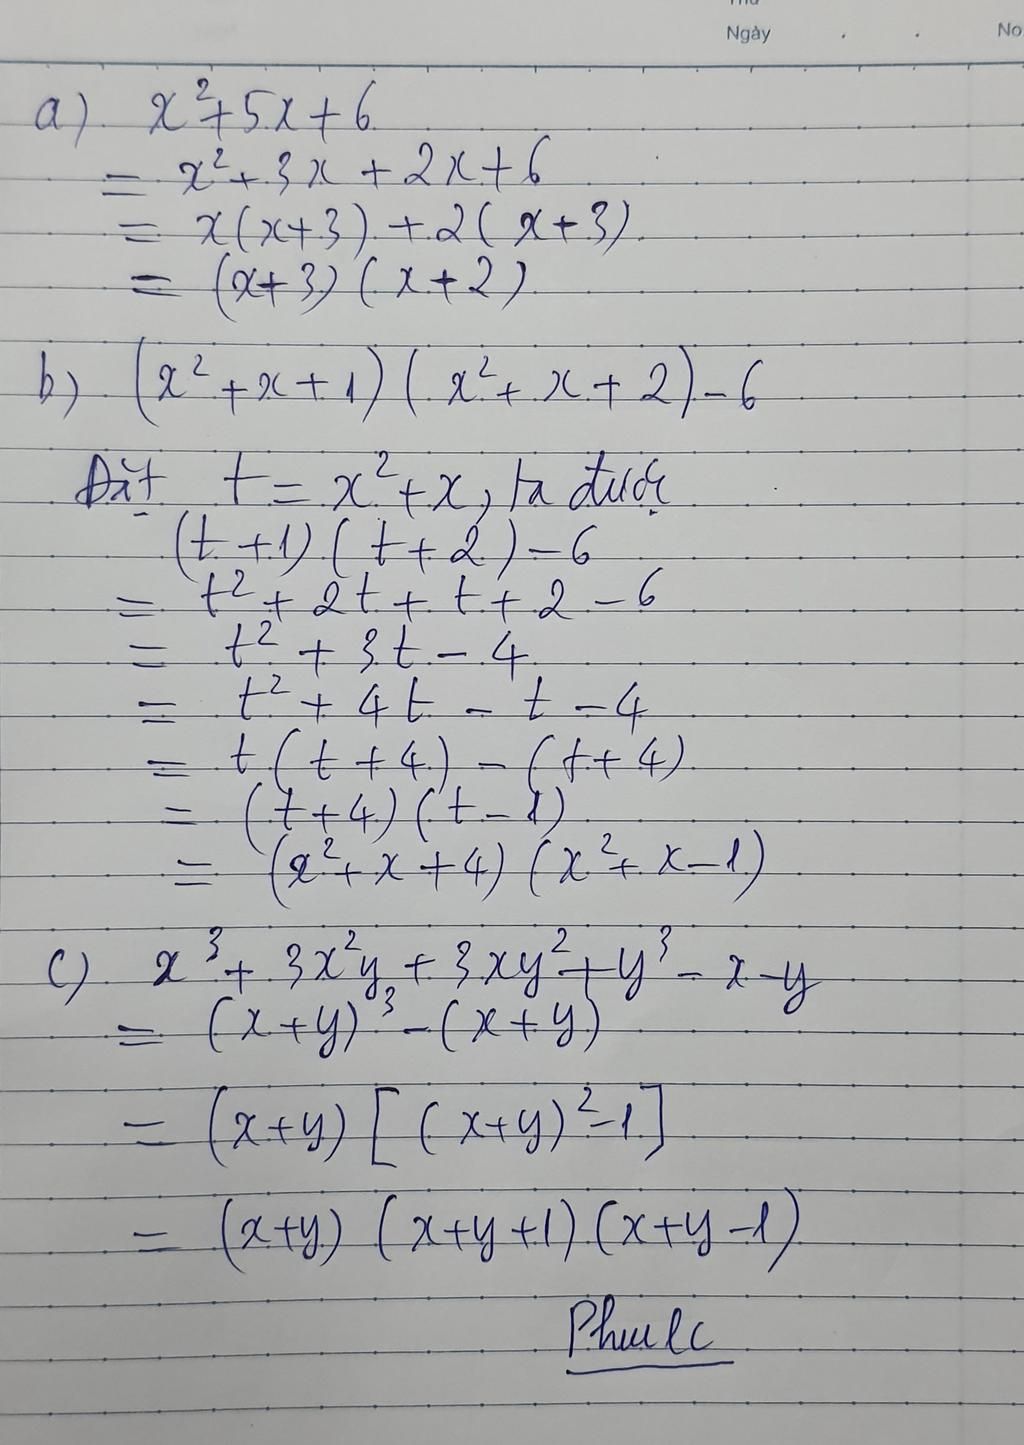 Thứ
Ngày . . No
a) x²+5x+6
= x²+3x+2x+6
= x(x+3)+2(x+3)
= (x+3)(x+2)
b) (x²+x+1)(x²+x+2)-6
Đặt t=x²+x, ta được
(t+1)(t+2)-6
= t²+2t+t+2-6
= t²+3t-4
= t²+4t-t-4
= t(t+4)-(t+4)
= (t+4)(t-1)
= (x²+x+4)(x²+x-1)
c) x³+3x²y+3xy²+y³-x-y
= (x+y)³-(x+y)
= (x+y)[(x+y)²-1]
= (x+y)(x+y+1)(x+y-1)